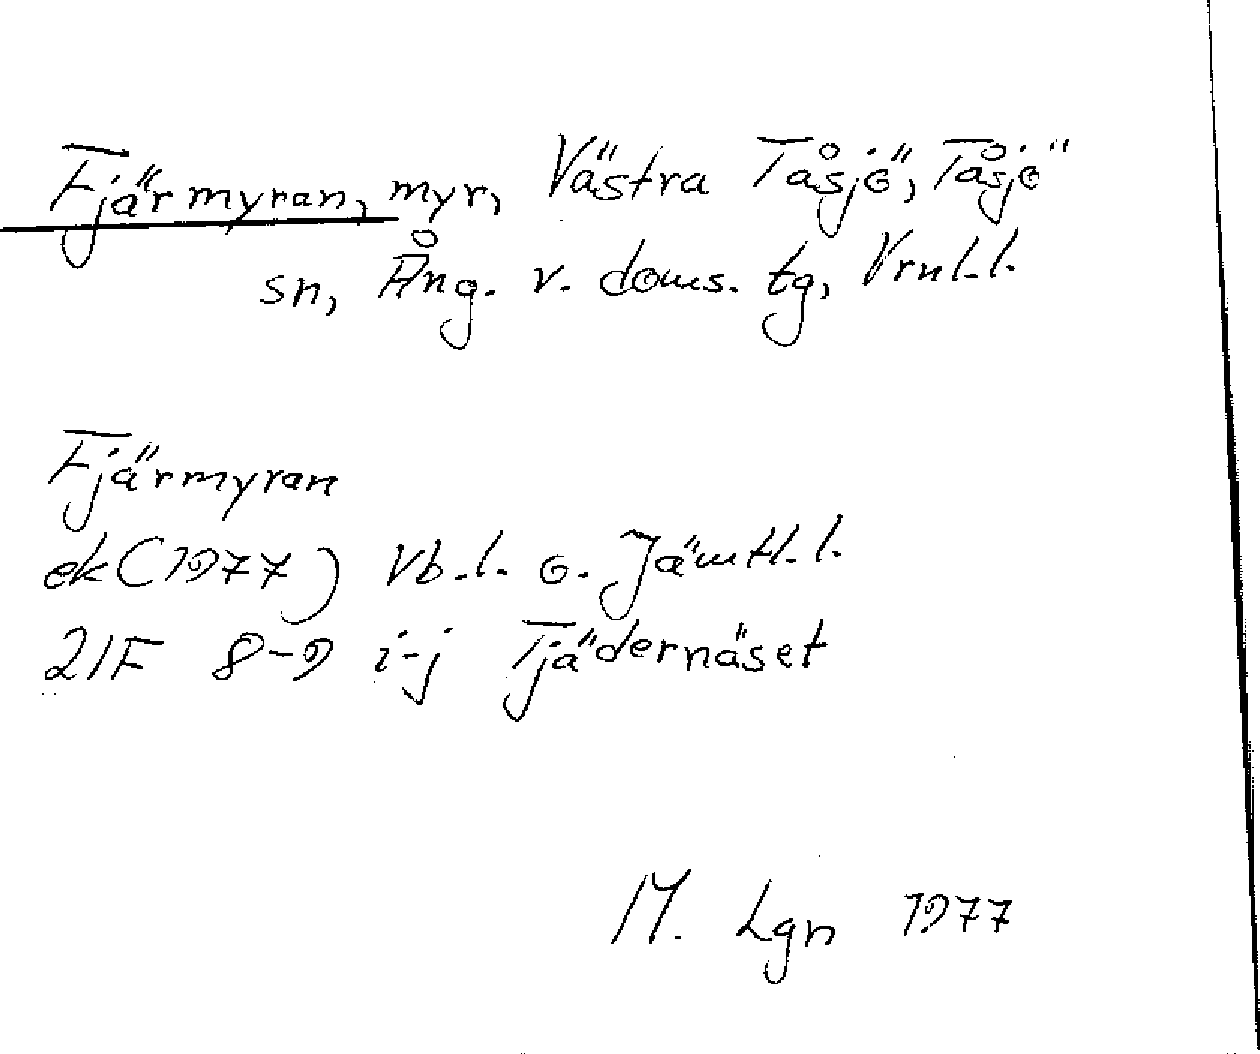 Fjärmyran, myr, Västra Tåsjö, Tåsjö
sn, Ång. v. doms. tg, Vrnl.l.
Fjärmyran
ek (1977) Vb.l. o. Jämtl.l.
21F 8-9 i-j Tjädernäset
M. Lgn 1977